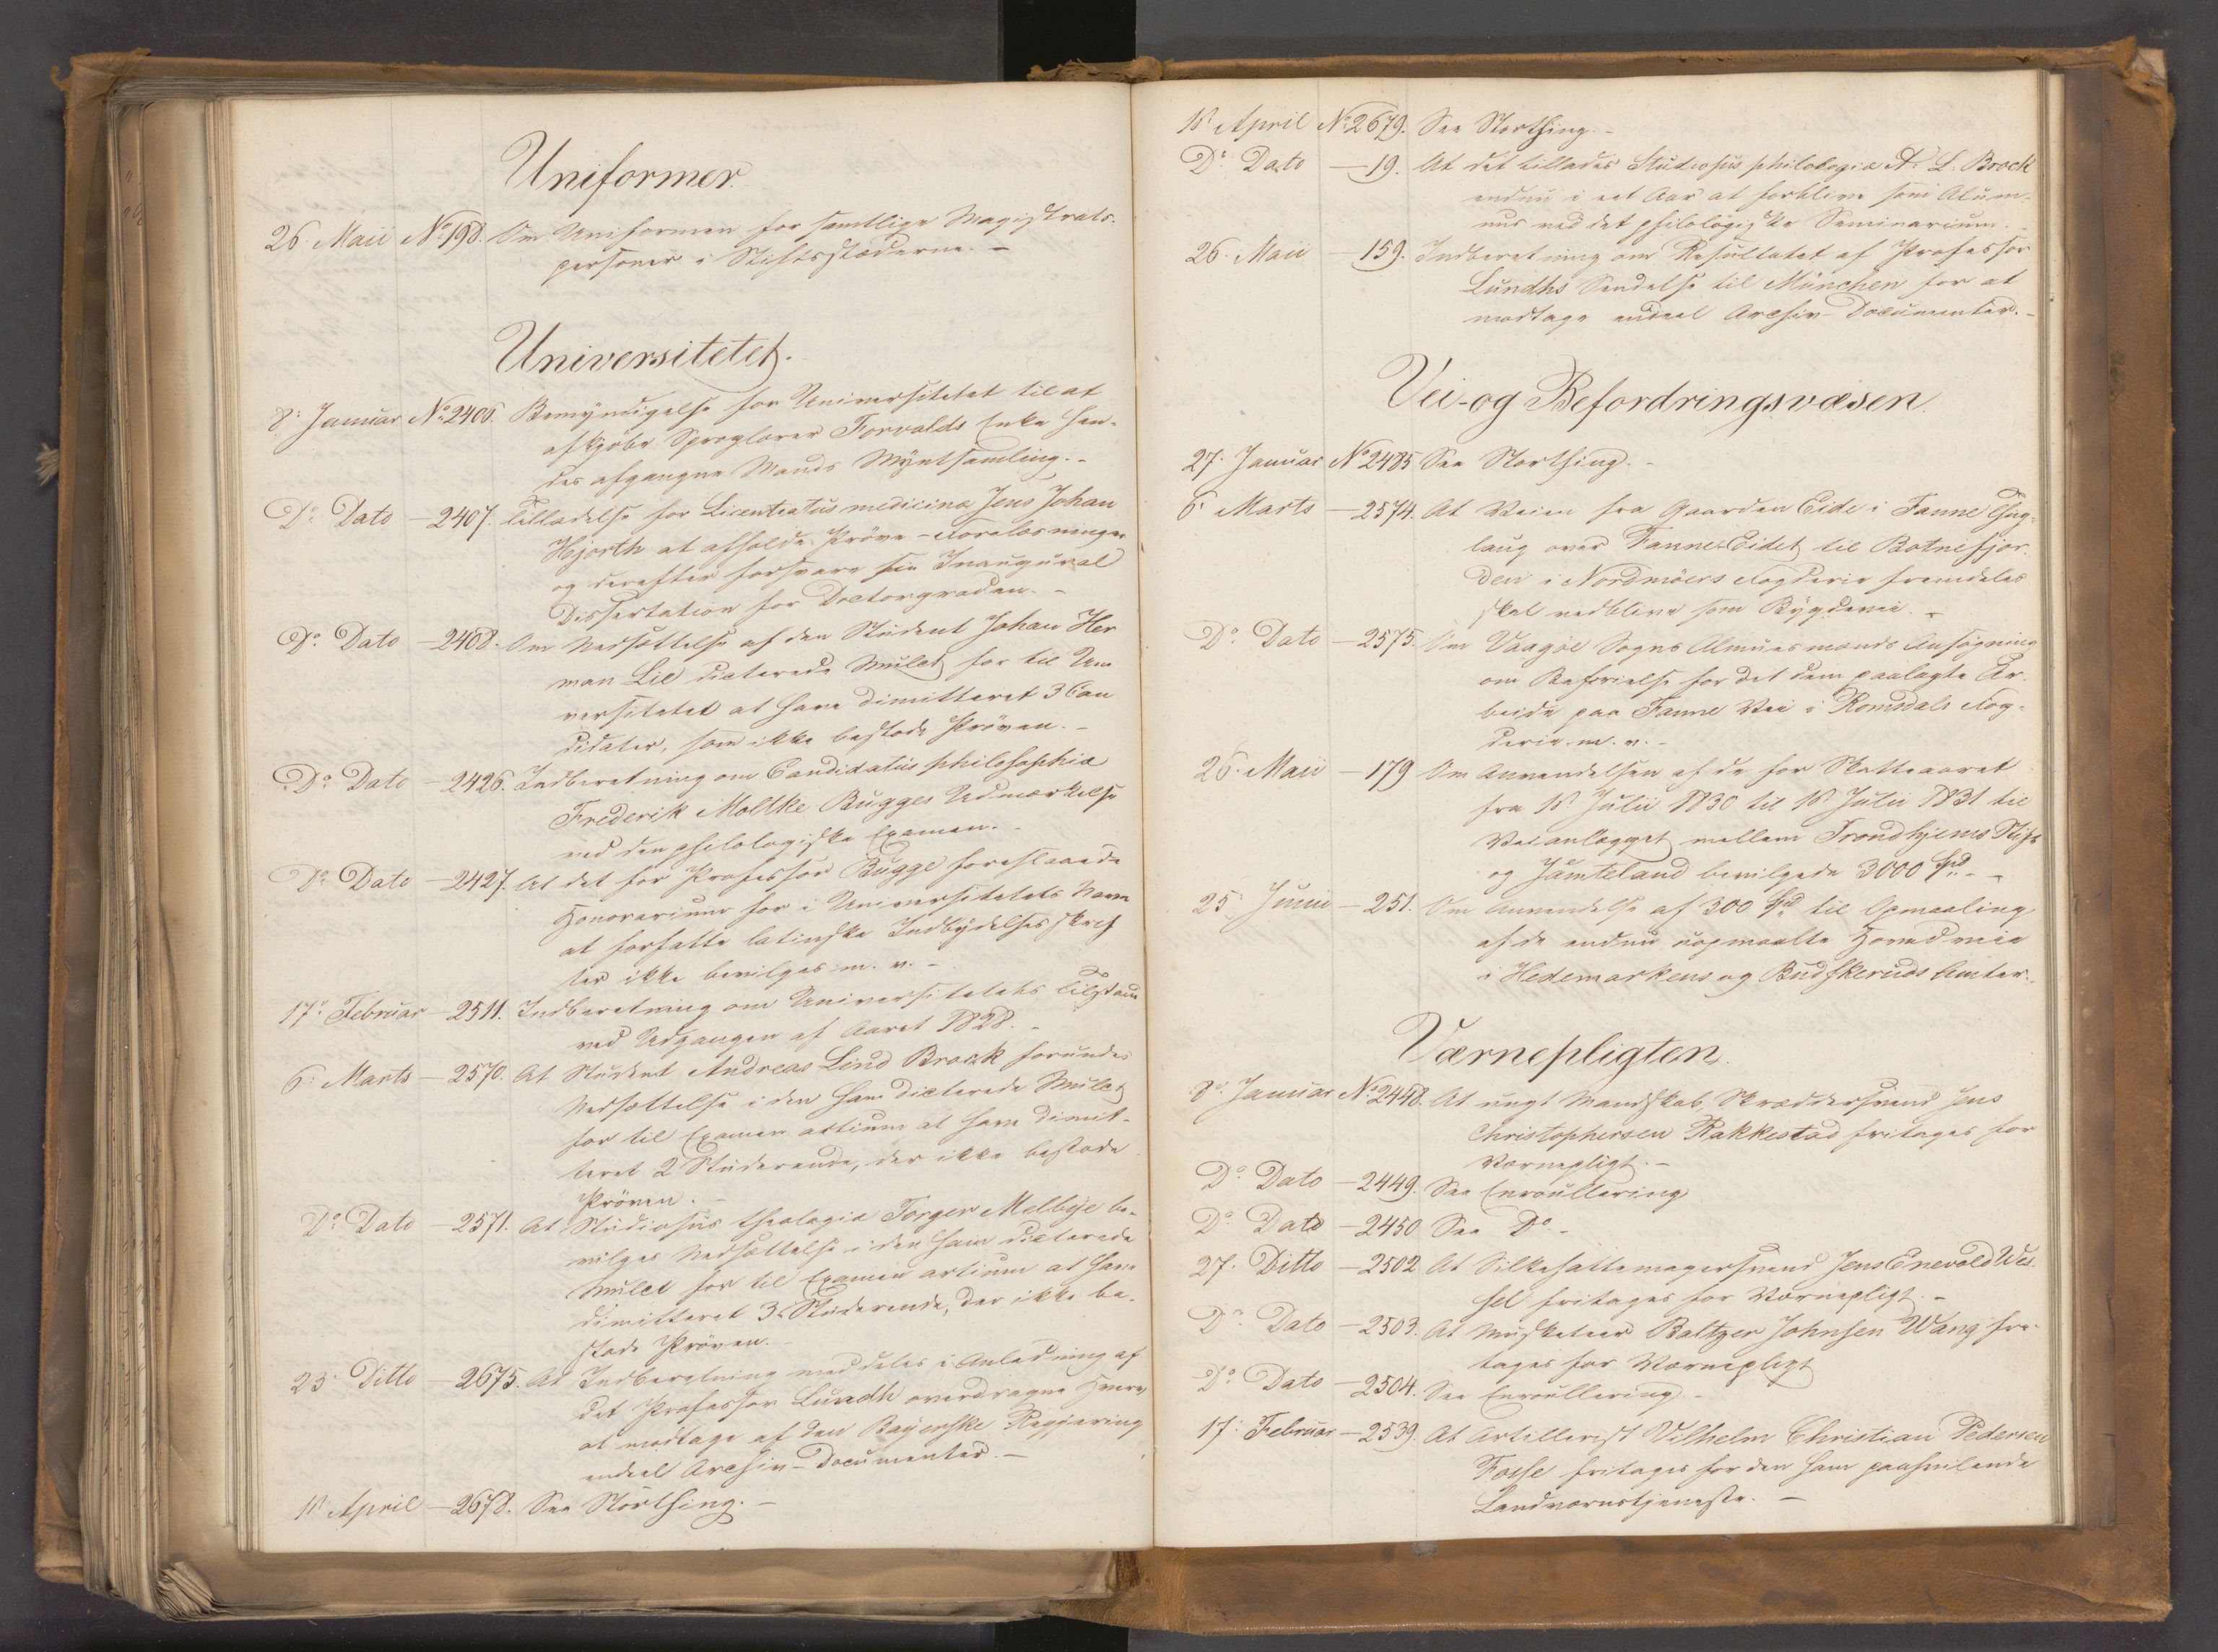 Uniformer.
26. Maii No 198. Om Uniformen for samtlige Magistrats-
personer i Stiftsstæderne. -
Universitetet.
8. Januar No 2406. Bemyndigelse for Universitetet til at
afkjøbe Sproglærer Forvalds Enke hen-
des afgangne Mands Myntsamling. -
Do Dato - 2407. Tilladelse for Licentiatus medicinæ Jens Johan
Hjorth at afholde Prøve-Forelæsninger
og derefter forsvare sin Inaugural
Dissertation for Doctorgraden. -
Do Dato - 2408. Om Nedsættelse af den Student Johan Her
man Lie dicterede Mulct for til Uni
versitetet at have dimitteret 3 Can
didater, som ikke bestode Prøven. -
Do Dato - 2426. Indberetning om Candidatus philosophiæ
Frederik Moltke Bugges Udmærkelse
ved den philologiske Examen. -
Do Dato - 2427. At det for Professor Bugge foreslaaede
Honorarium for i Universitetets Navn
at forfatte latinske Indbydelsesskrif
ter ikke bevilges m. v. -
17. Februar - 2511. Indberetning om Universitetets Tilstand
ved Udgangen af Aaret 1828. -
6. Marts - 2570. At Student Andreas Lind Brock forundes
Nedsættelse i den ham dicterede Mulct
for til Examen artium at have dimit-
teret 2 Studerende, der ikke bestode
Prøven. -
Do Dato - 2571. At Studiosus theologiæ Torger Melbye be-
vilges Nedsættelse i den ham dicterede
Mulct for til Examen artium at have
dimitteret 3 Studerende, der ikke be-
stode Prøven.
23. Ditto - 2675. At Indberetning meddeles i Anledning af
det Professor Lundh overdragne Hverv
at modtage af den Bayerske Regjering
endeel Archiv-Documenter. -
18 April - 2678. See Storthing. -
18 April No 2679. See Storthing. -
Do Dato - 19. At det tillades Studiosus philologiæ A. L. Brock
endnu i eet Aar at forblive som Alum-
nus ved det philologiske Seminarium. -
26. Maii - 159. Indberetning om Resultatet af Professor
Lundhs Sendelse til München for at
modtage endeel Archiv-Documenter. -
Vei- og Befordringsvæsen.
27. Januar No 2485 See Storthing. -
6. Marts - 2574. At Veien fra Gaarden Eide i Fanne Thing-
laug over Fanne-Eidet til Botnefjor-
den i Nordmöers Fogderie fremdeles
skal vedblive som Bygdevei. -
Do Dato - 2575. Om Vaagøe Sogns Almuesmænds Ansøgning
om Befrielse for det dem paalagte Ar-
beide paa Fanne Vei i Romsdals Fog-
derie m. v. -
26. Maii - 179 Om Anvendelsen af de for Skatteaaret
fra 1ste Julii 1830 til 1ste Julii 1831 til
Veianlægget mellem Trondhjems Stift
og Jämteland bevilgede 3000 Spd. -
25. Junii - 251. Om Anvendelse af 300 Spd til Opmaaling
af de endnu uopmaalte Hovedveie
i Hedemarkens og Budskeruds Amter.
Værnepligten.
8. Januar No 2448. At ungt Mandskab, Skræddersvend Jens
Christophersen Rakkestad fritages for
Værnepligt. -
Do Dato - 2449. See Enroullering
Do Dato - 2450 See Do. -
27. Ditto - 2502 At Silkehattemagersvend Jens Enevold Wes-
sel fritages for Værnepligt. -
Do Dato - 2503. At Musketeer Baltzer Johnsen Wang fri-
tages for Værnepligt
Do Dato - 2504. See Enroullering. -
17. Februar - 2539. At Artillerist Vilhelm Christian Pedersen
Fosse fritages for den ham paahvilende
Landværnstjeneste. -